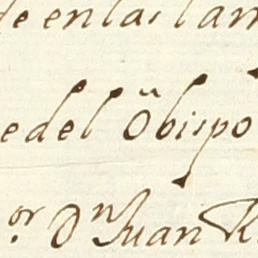 de en las lam
e del Öbispo
or Dn Juan R